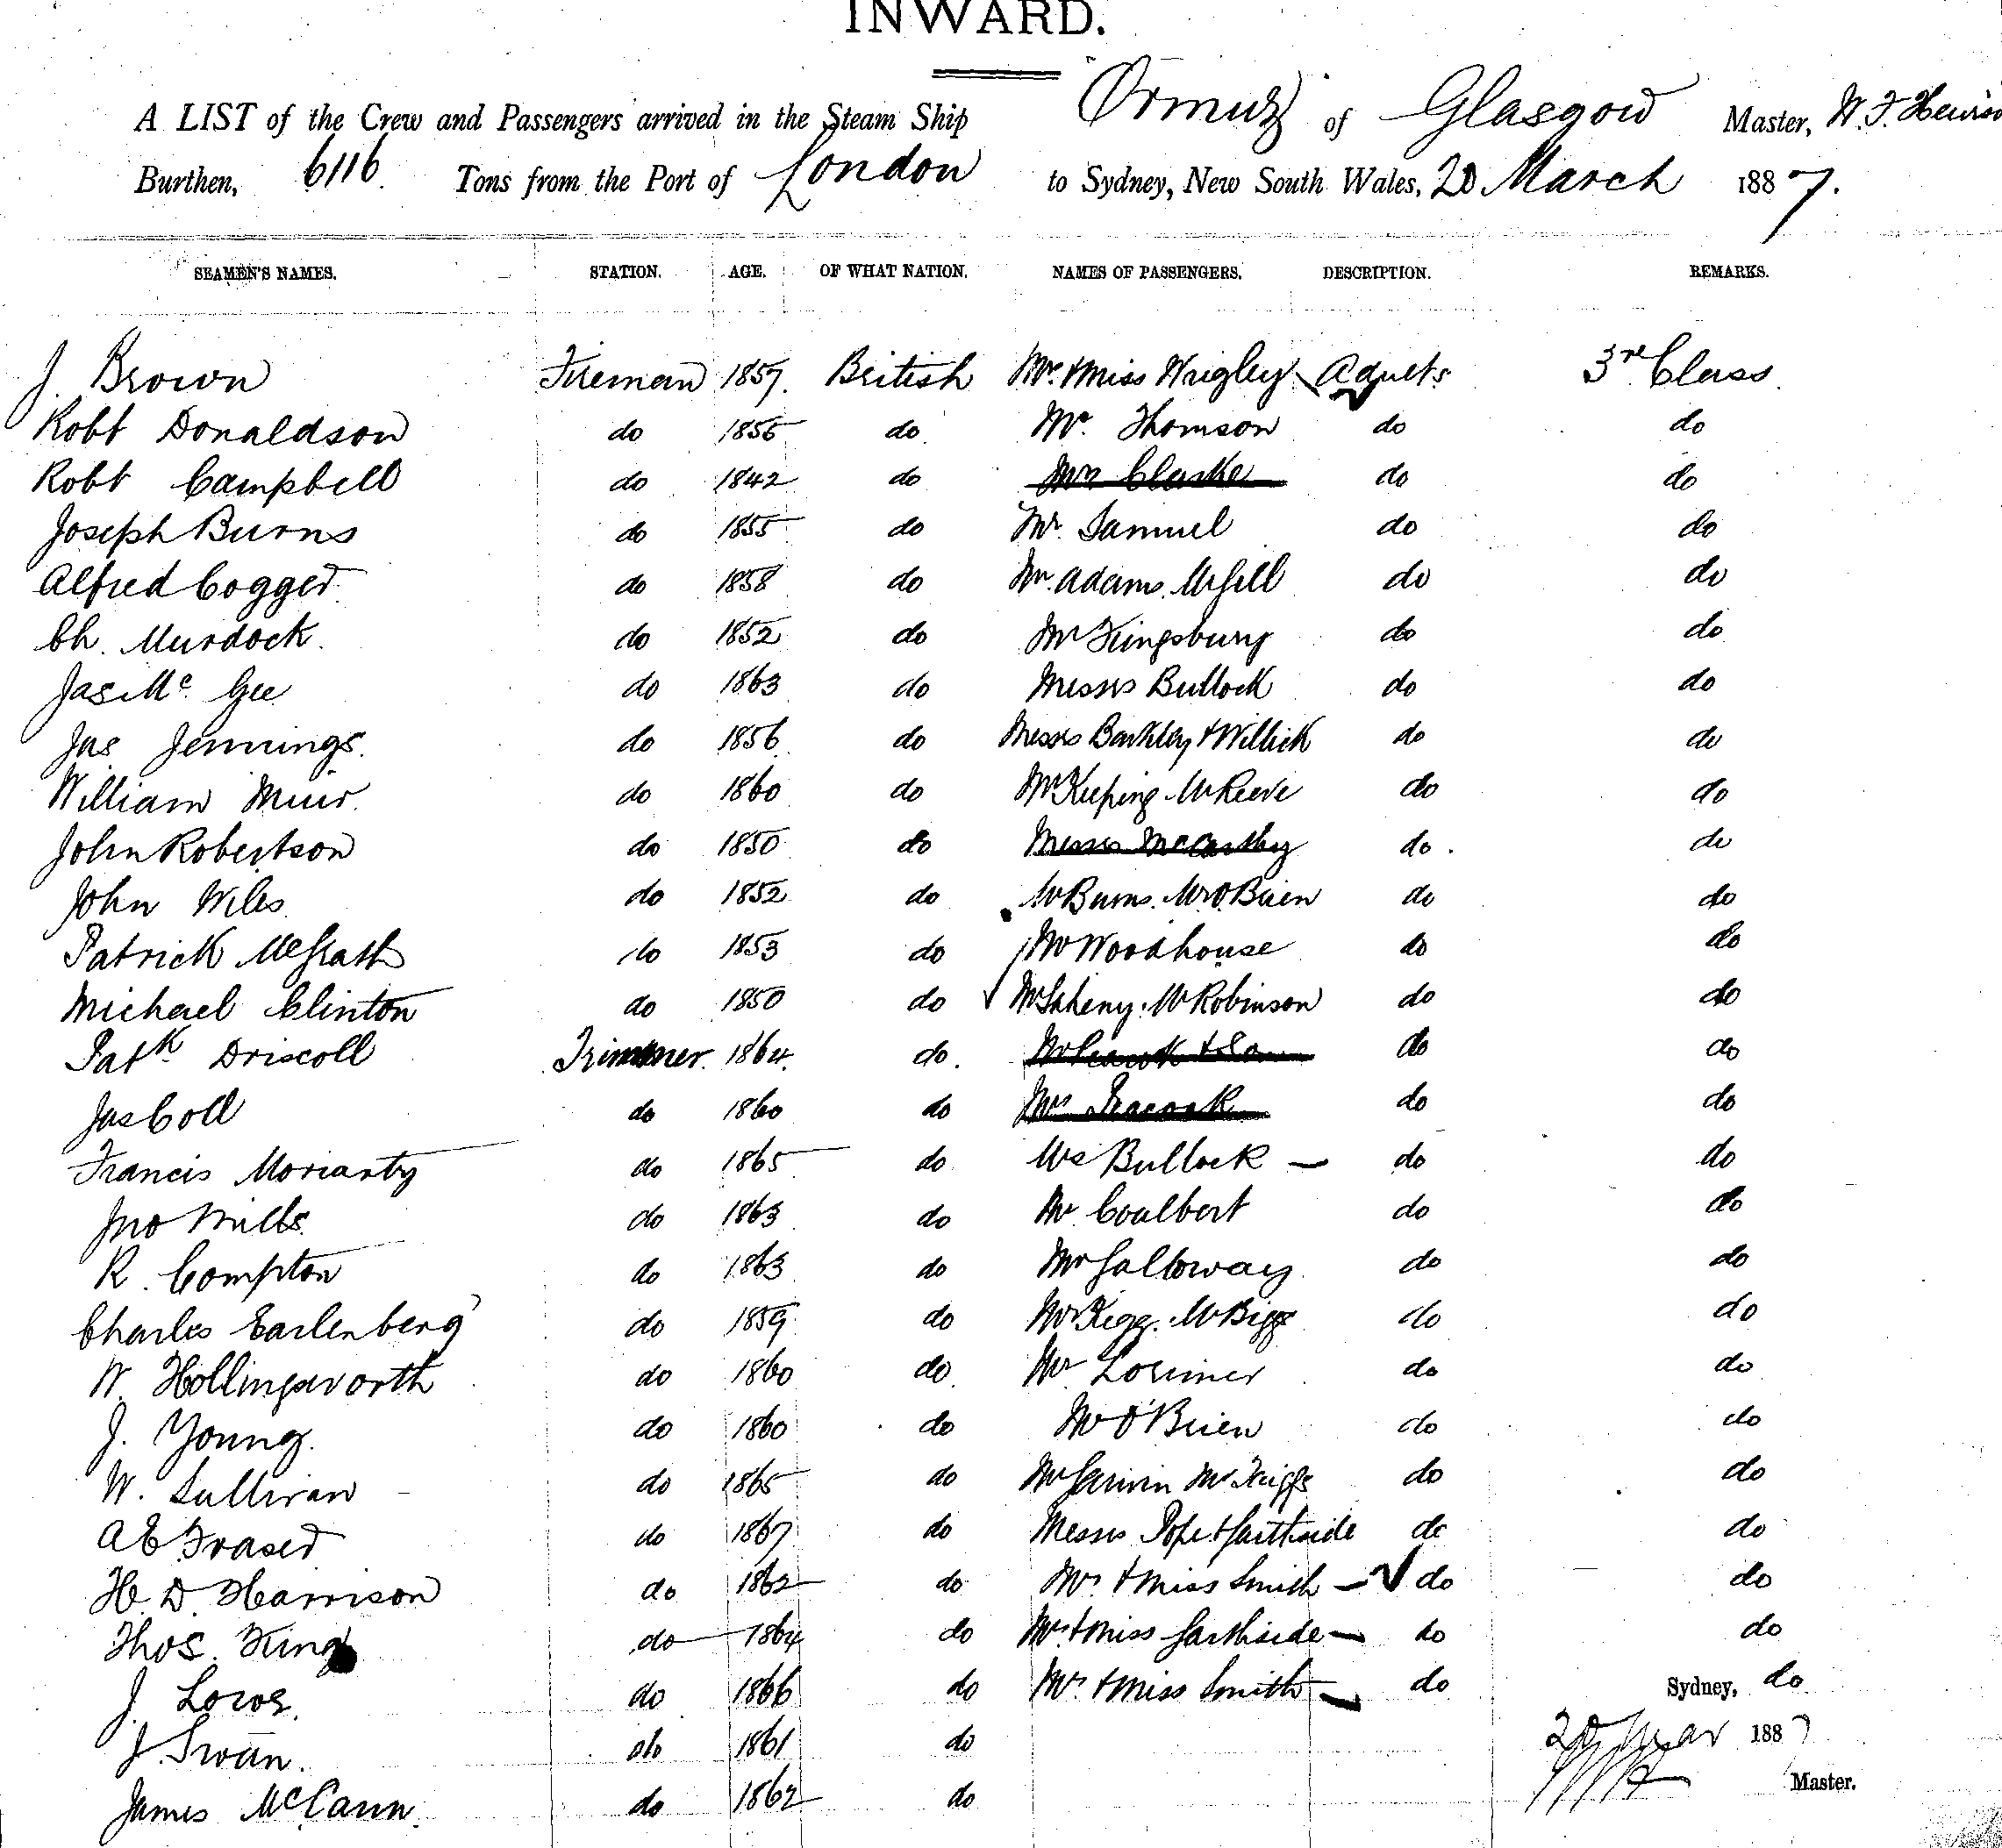 INWARD.
A LIST of the Crew and Passengers arrived in the Steam Ship Ormuz of Glasgow Master, W. F.
Burthen, 6116 Tons from the Port of London to Sydney, New South Wales, 20 March 1887.
SEAMEN'S NAMES. STATION. AGE. OF WHAT NATION. NAMES OF PASSENGERS. DESCRIPTION. REMARKS.
J. Brown Fireman 1857 British Mr. & Miss Wrigley Adults 3rd Class
Robt Donaldson do 1856 do Mr. Thomson do do
Robt Campbell do 1842 do Mrs Clarke do do
Joseph Burns do 1855 do Mr. Samuel do do
Alfred Cogger do 1858 do Mr. Adams. Mr Gill do do
Ch. Murdock do 1852 do Mr Kingsbury do do
Jas Mc Gee do 1863 do Messrs Bullock do do
Jas Jennings. do 1856 do Messrs Barkley & Willick do do
William Muir. do 1860 do Mr Keeping. Mr Reeve do do
John Robertson do 1850 do Messrs McCarthy do do
John Wiles do 1852 do Mr Burns. Mr O'Brien do do
Patrick McGrath do 1853 do Mr Woodhouse do do
Michael Clinton do 1850 do Mr Robinson do do
Patk Driscoll Trimmer 1864 do do do
Jas Coll do 1860 do Mrs Peacock do do
Francis Moriarty do 1865 do Bullock do do
Jno Mills do 1863 do Mr Coulbert do do
R. Compton do 1863 do Mr Galloway do do
Charles Earlenberg do 1859 do Mr Kegg. Mr Bigg do do
W. Hollingsworth do 1860 do Mr Lorimer do do
J. Young. do 1860 do Mr O'Brien do do
W. Sullivan do 1865 do do do
A E Fraser do 1867 do Messrs Pope & Garthside do do
H. D. Harrison do 1862 do Mr. & Miss Smith do do
Thos. King do 1864 do Mr. & Miss Garthside do do
J. Lowe do 1866 do Mr. & Miss Smith do Sydney, do
J. Swan. do 1861 do 20 Mar 1887
James McCann. do 1862 do Master.